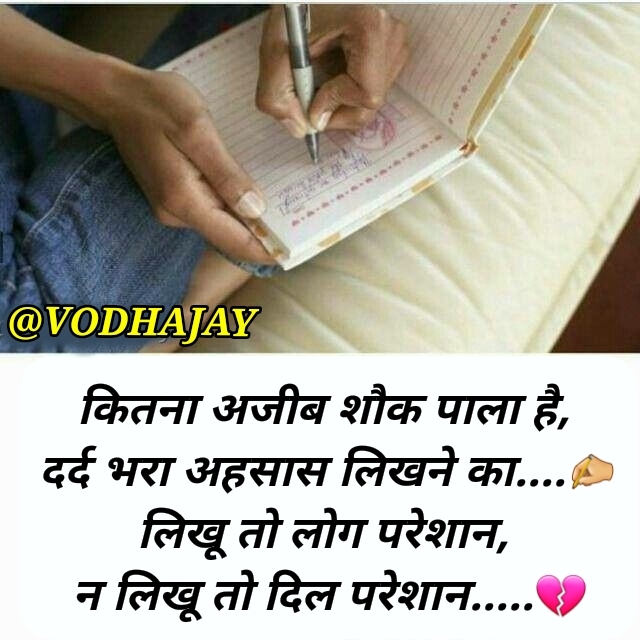 @VODHAJAY
कितना अजीब शौक पाला है,
दर्द भरा अहसास लिखने का....✍️
लिखू तो लोग परेशान,
न लिखू तो दिल परेशान.....💔